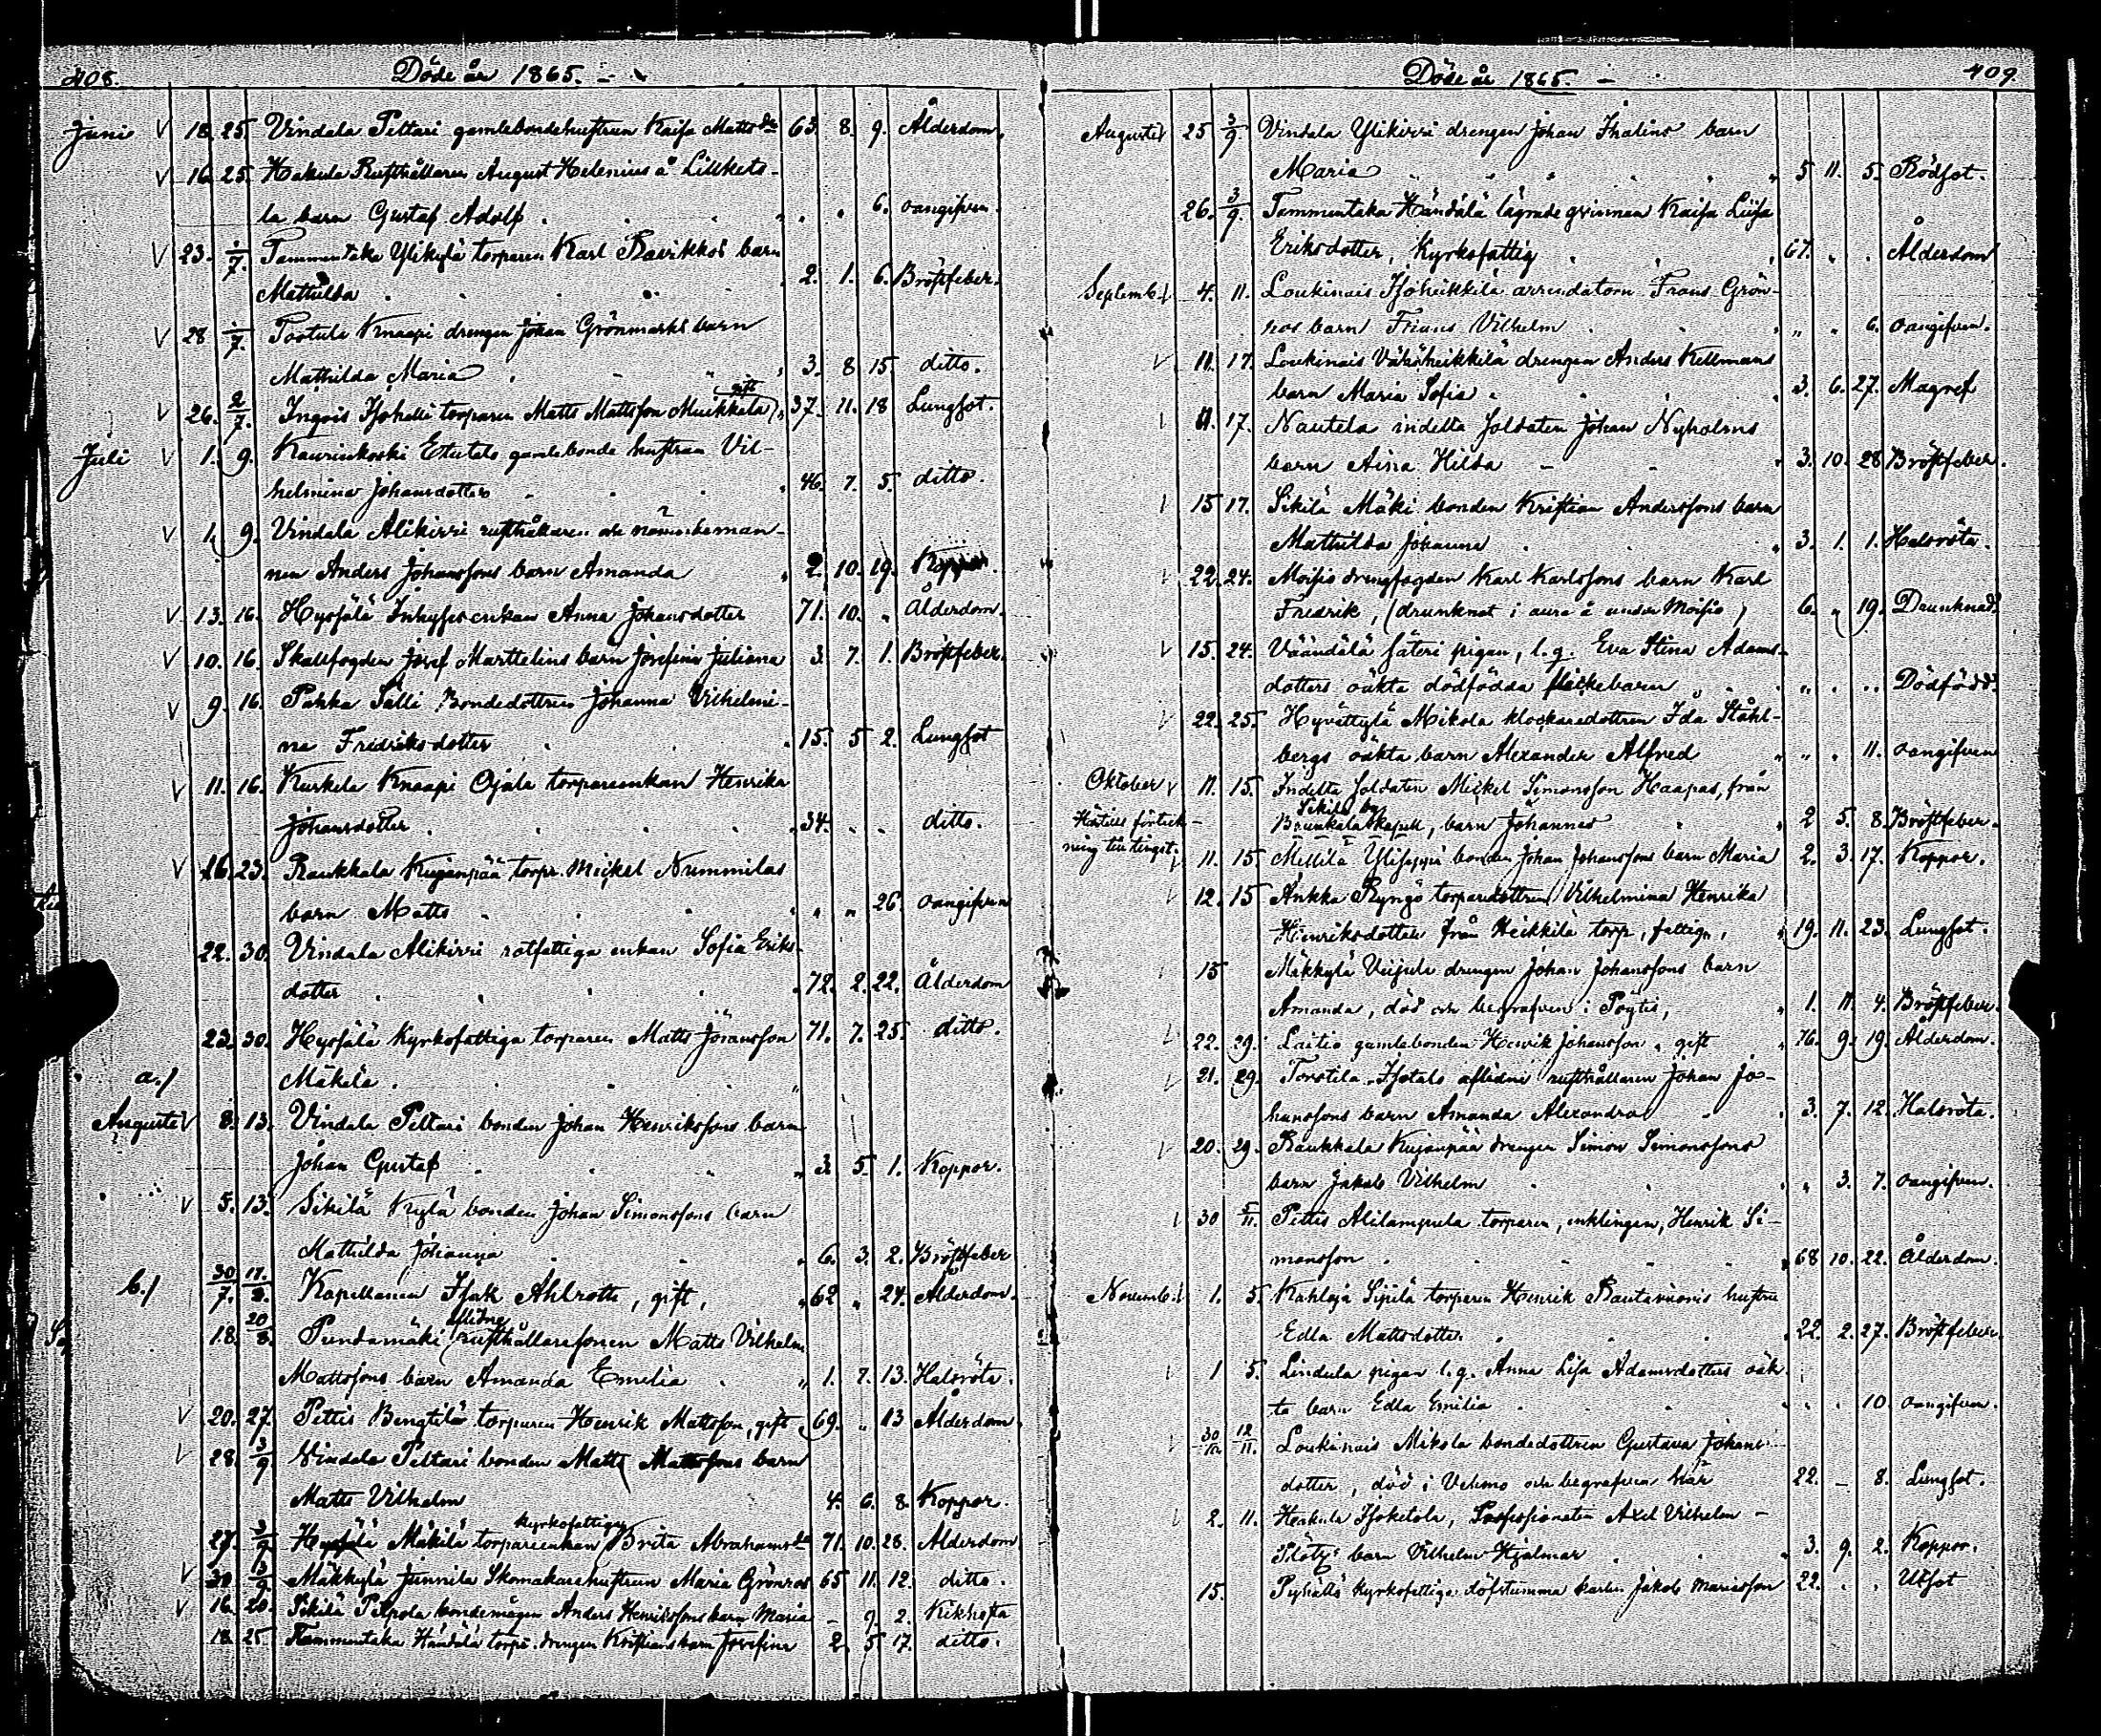 408.
Döde år 1865. –
Juni V 18. 25. Vindala Peltari gamlebondehustrun Kaisa Matts dr 63. 8. 9. Ålderdom.
V 16. 25. Hakula Rusthållaren August Helenius å Lillkets-
la barn Gustaf Adolf . . . 6. oangifven.
V 23. 1/7. Tammentaka Ylikylä torparen Karl barn
Mathilda . . . 2. 1. 6. Bröstfeber.
V 28 1/7. Tortula Knaapi drengen Johan Grönmarks barn
Mathilda Maria . 3. 8 15. ditto.
V 26. 2/7. Ingois Isohelli torparen Matts Mattsson Muikkala, gift 37. 11. 18 Lungsot.
Juli V 1. 9. Kaurinkoski gamlebonde hustrun Vil-
helmina Johansdotter 46. 7. 5. ditto.
V 1. 9. Vindala Alikirri rusthållaren och nämndeman-
nen Anders Johanssons barn Amanda 2. 10. 19. Koppor.
V 13. 16. Hypsjälä enkan Anna Johansdotter 71. 10. „ Ålderdom.
V 10. 16. Skallfogden Josef Marttelins barn Josefina Juliana 3. 7. 1. Bröstfeber.
V 9. 16. Pahka Sälli Bondedottren Johanna Vilhelmi-
na Fredriksdotter . . . 15. 5 2. Lungsot
V 11. 16. Kurkela Knaapi Ojala torpareenkan Henrika
Johansdotter . . . 34. „ „ ditto.
V 16. 23. Raukkala Kujanpää torp. Mickel Nummilas
barn Matts . . . „ „ 26. oangifven
22. 30. Vindala Alikirri rotfattiga enkan Sofia Eriks-
dotter . . . 72. 2. 22. Ålderdom
23. 30. Hypsjälä kyrkofattiga torparen Matts Göransson 71. 7. 25. ditto.
a./ Mäkilä .
Augusti V 8. 13. Vindala Peltari bonden Johan Henrikssons barn
Johan Gustaf . . . 3. 5. 1. Koppor.
V 5. 13. Sikilä Kylä bonden Johan Simonssons barn
Mathilda Johanna . . . 6. 3. 2. Bröstfeber
b./ 30/7. 17./8. Kapellanen Isak Ahlroth, gift, 62 „ 24. Ålderdom.
18. 20/8. Pundamäki aflidne rusthållaresonen Matts Vilhelm
Mattssons barn Amanda Emilia . 1. 7. 13. Halsröta.
V 20. 27. Pettis Bengtilä torparen Henrik Mattsson, gift 69. „ 13 Ålderdom.
V 28. 3/9 Vindala Peltari bonden Matts Mattssons barn
Matts Vilhelm 4. 6. 8. Koppor.
27. 3/9 Hypsjälä Mäkilä torpareenkan kyrkofattiga Brita Abrahamsdr 71. 10. 28. Ålderdom
V 30 3/9. Mäkkylä Junnila Skomakarehustrun Maria Grönros 65 11. 12. ditto.
V 16. 20. Sikilä Pilpola bondemågen Anders Henrikssons barn Maria – 9. 2. Kikhosta
18. 25 Tammentaka Händälä torp. drengen Kristians barn Josefina 2. 5 17. ditto.
Döde år 1865. –
409.
Augusti 25 3/9 Vindala Ylikirri drengen Johan Thalins barn
Maria . . . 5 11. 5. Rödsot.
26. 3/9. Tammentaka Händälä lägrade qvinnan Kaisa Liisa
Eriksdotter, kyrkofattig . . . 67. „ . Ålderdom
Septemb. 4. 11. Loukinais Isoheikkilä arrendatorn Frans Grön-
ros barn Frans Vilhelm . . „ „ 6. oangifven.
V 11. 17. Loukinais Vähäheikkilä drengen Anders Kellmans
barn Maria Sofia . . . 3. 6. 27. Magref
11. 17. Nautela indelta Soldaten Johan Nyholms
barn Aina Hilda – – 3. 10. 28 Bröstfeber.
15 17. Sikilä Mäki bonden Kristian Anderssons barn
Mathilda Johanna . . . 3. 1. 1. Halsröta.
V 22. 24. Moisio drengfogden Karl Karlssons barn Karl
Fredrik, (drunknat i aura å under Moisio) 6. „ 19. Drunknad.
V 15. 24. Väändälä säteri pigan, l. q. Eva Stina Adams-
dotters oäkta dödfödda flickebarn „ . .. Dödfödd.
V 22. 25. Hyvättylä Mikola klockaredottren Ida Ståhl-
bergs oäkta barn Alexander Alfred „ „ 11. oangifven
Oktober V 11. 15. Indelta Soldaten Mickel Simonsson Haapas, från
Sikilä by
Härtills förteck-
ning till tinget. kapell, barn Johannes . 2 5. 8. Bröstfeber.
V 11. 15 Mellilä bonden Johan Johanssons barn Maria 2. 3. 17. Koppor.
V 12. 15 Ankka Ryngö torparedottren Vilhelmina Henrika
Henriksdotter från Heikkilä torp, fattig, 19. 11. 23. Lungsot.
15 Mäkkylä drengen Johan Johanssons barn
Amanda, död och begrafven i Pöytis, 1. 11. 4. Bröstfeber.
22. 29. Laitio gamlebonden Henrik Johansson, gift 76. 9. 19. Ålderdom.
21. 29. Torstila Isotalo aflidne rusthållaren Johan Jo-
hanssons barn Amanda Alexandra 3. 7. 12. Halsröta.
V 20. 29. Raukkala Kujanpää drengen Simon Simonssons
barn Jakob Vilhelm . . „ 3. 7. oangifven.
30 5/11. Pettis Alilampula torparen, enklingen, Henrik Si-
monsson . . . 68 10. 22. Ålderdom.
Novemb. 1. 5. Kahloja Sipilä torparen Henrik Rautavuoris hustru
Edla Mattsdotter . . 22. 2. 27. Bröstfeber.
1 5. Lindula pigan l. q. Anna Lisa Adamsdotters oäk-
ta barn Edla Emilia . . . 10. oangifven.
30/10. 12/11. Loukinais Mikola bondedottren Gustava Johans-
dotter, död i Vehmo och begrafven här 22. – 8. Lungsot.
2. 11. Hakula Isoketola, Possessionaten Axel Vilhelm –
Plötz' barn Vilhelm Hjalmar . 3. 9. 2. Koppor.
15. kyrkofattiga döfstumma karlen Jakob Mariasson 22. . . Utsot